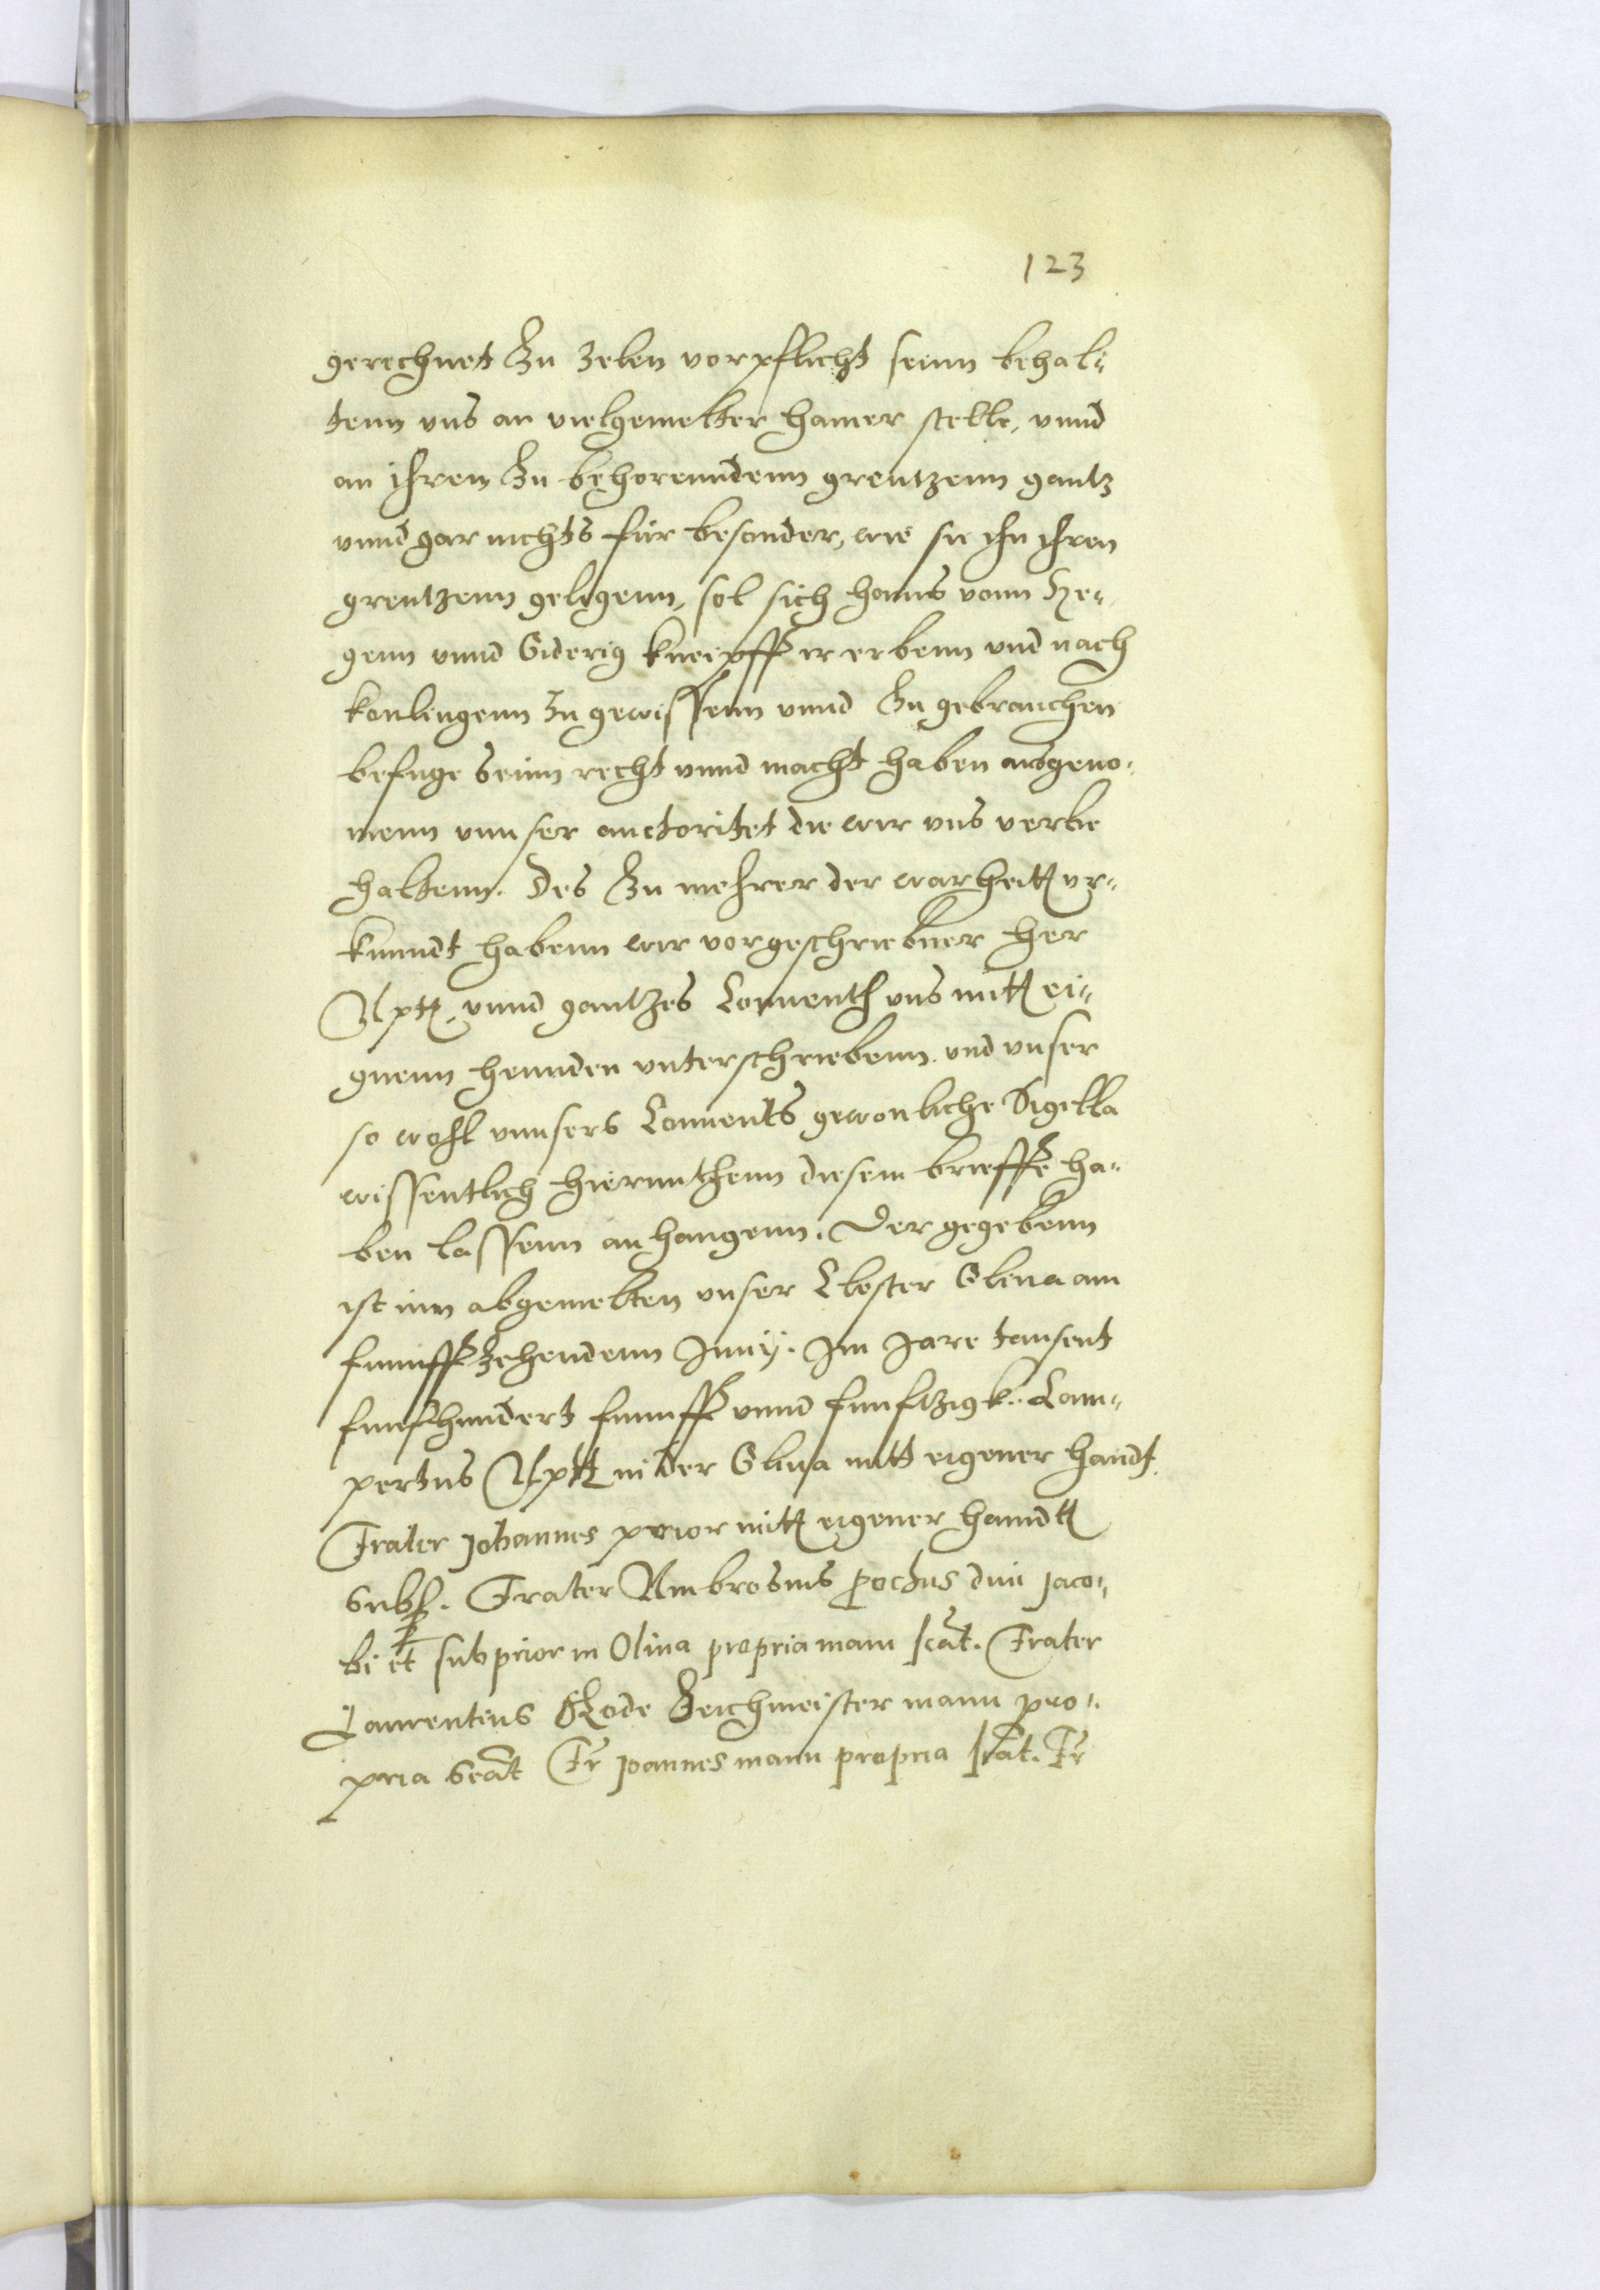 123
gerechnet Zu zelen vorpflicht seinn behal-
tenn vns an vielgemelter hamer stelle, vnnd
an ihren Zu behorenndenn grentzenn gantz
vnnd gar nichts für besonder, wie sie jhn jhren
grentzenn gelegenn, sol sich hanns vonn He-
genn vnnd Giderig kneipff ir erbenn vnd nach
konlingenn zu gewissenn vnnd Zu gebrauchen
befuge seinn recht vnnd macht haben ausgeno-
menn vnnser auctoritet die wir vns verbe
haltenn. Des Zu mehrer der warheitt vr-
kunndt habenn wir vorgeschriebner her
Aptt, vnnd gantzes Conuenth vns mitt ei-
gnenn hennden vnterschriebenn vnd vnser
so wohl vnnsers Conuents gewonliche Sigilla
wissentlich hierunthenn diesem brieffe ha-
ben lassenn anhangenn. Der gegebenn
ist inn abgemelten vnser Closter Oliua am
funnffzehendenn Junij. Im Jare tausent
funfhundert funnff vnnd funftzigk. Lam-
pertus Aptt in der Oliua mitt eigener handt
Frater Johannes prior mitt eigener hanndtt
subß. Frater Ambrosius pochus diui Jaco-
bi et subprior in Oliua propria manu scät. Frater
Laurentius Rode Zeichmeister manu pro-
pria scät Fr Joannes manu propria scät. Fr